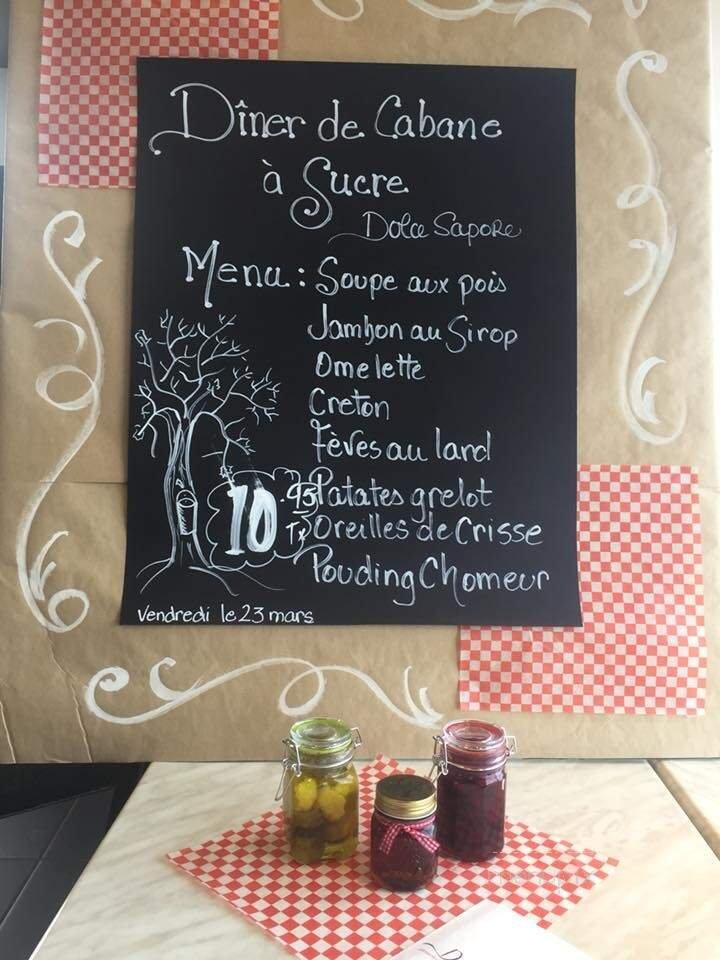 Dîner de Cabane
à Sucre
Dolce Sapore
Menu : Soupe aux pois
Jambon au Sirop
Omelette
Creton
Fèves au lard
Patates grelot
Oreilles de Crisse
Pouding Chomeur
10.95
Tx
Vendredi le 23 mars